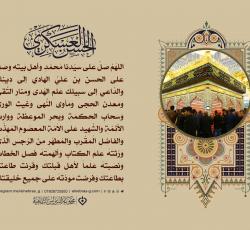 الحسن العسكري
اللهم صل على سيدنا محمد وأهل بيته وصل
على الحسن بن علي الهادي إلى دينك
والداعي إلى سبيلك علم الهدى ومنار التقى
ومعدن الحجى ومأوى النهى وغيث الورى
وسحاب الحكمة وبحر الموعظة ووارث
الأئمة والشهيد على الأمة المعصوم المهذب
والفاضل المقرب والمطهر من الرجس الذي
ورثته علم الكتاب وألهمته فصل الخطاب
ونصبته علما لأهل قبلتك وقرنت طاعته
بطاعتك وفرضت مودته على جميع خليقتك